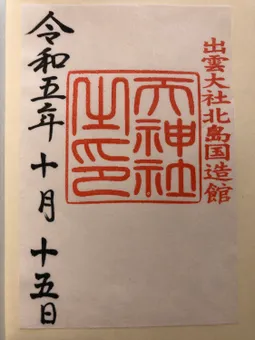 出雲大社北島国造館
天神社
之印
令和五年十月十五日